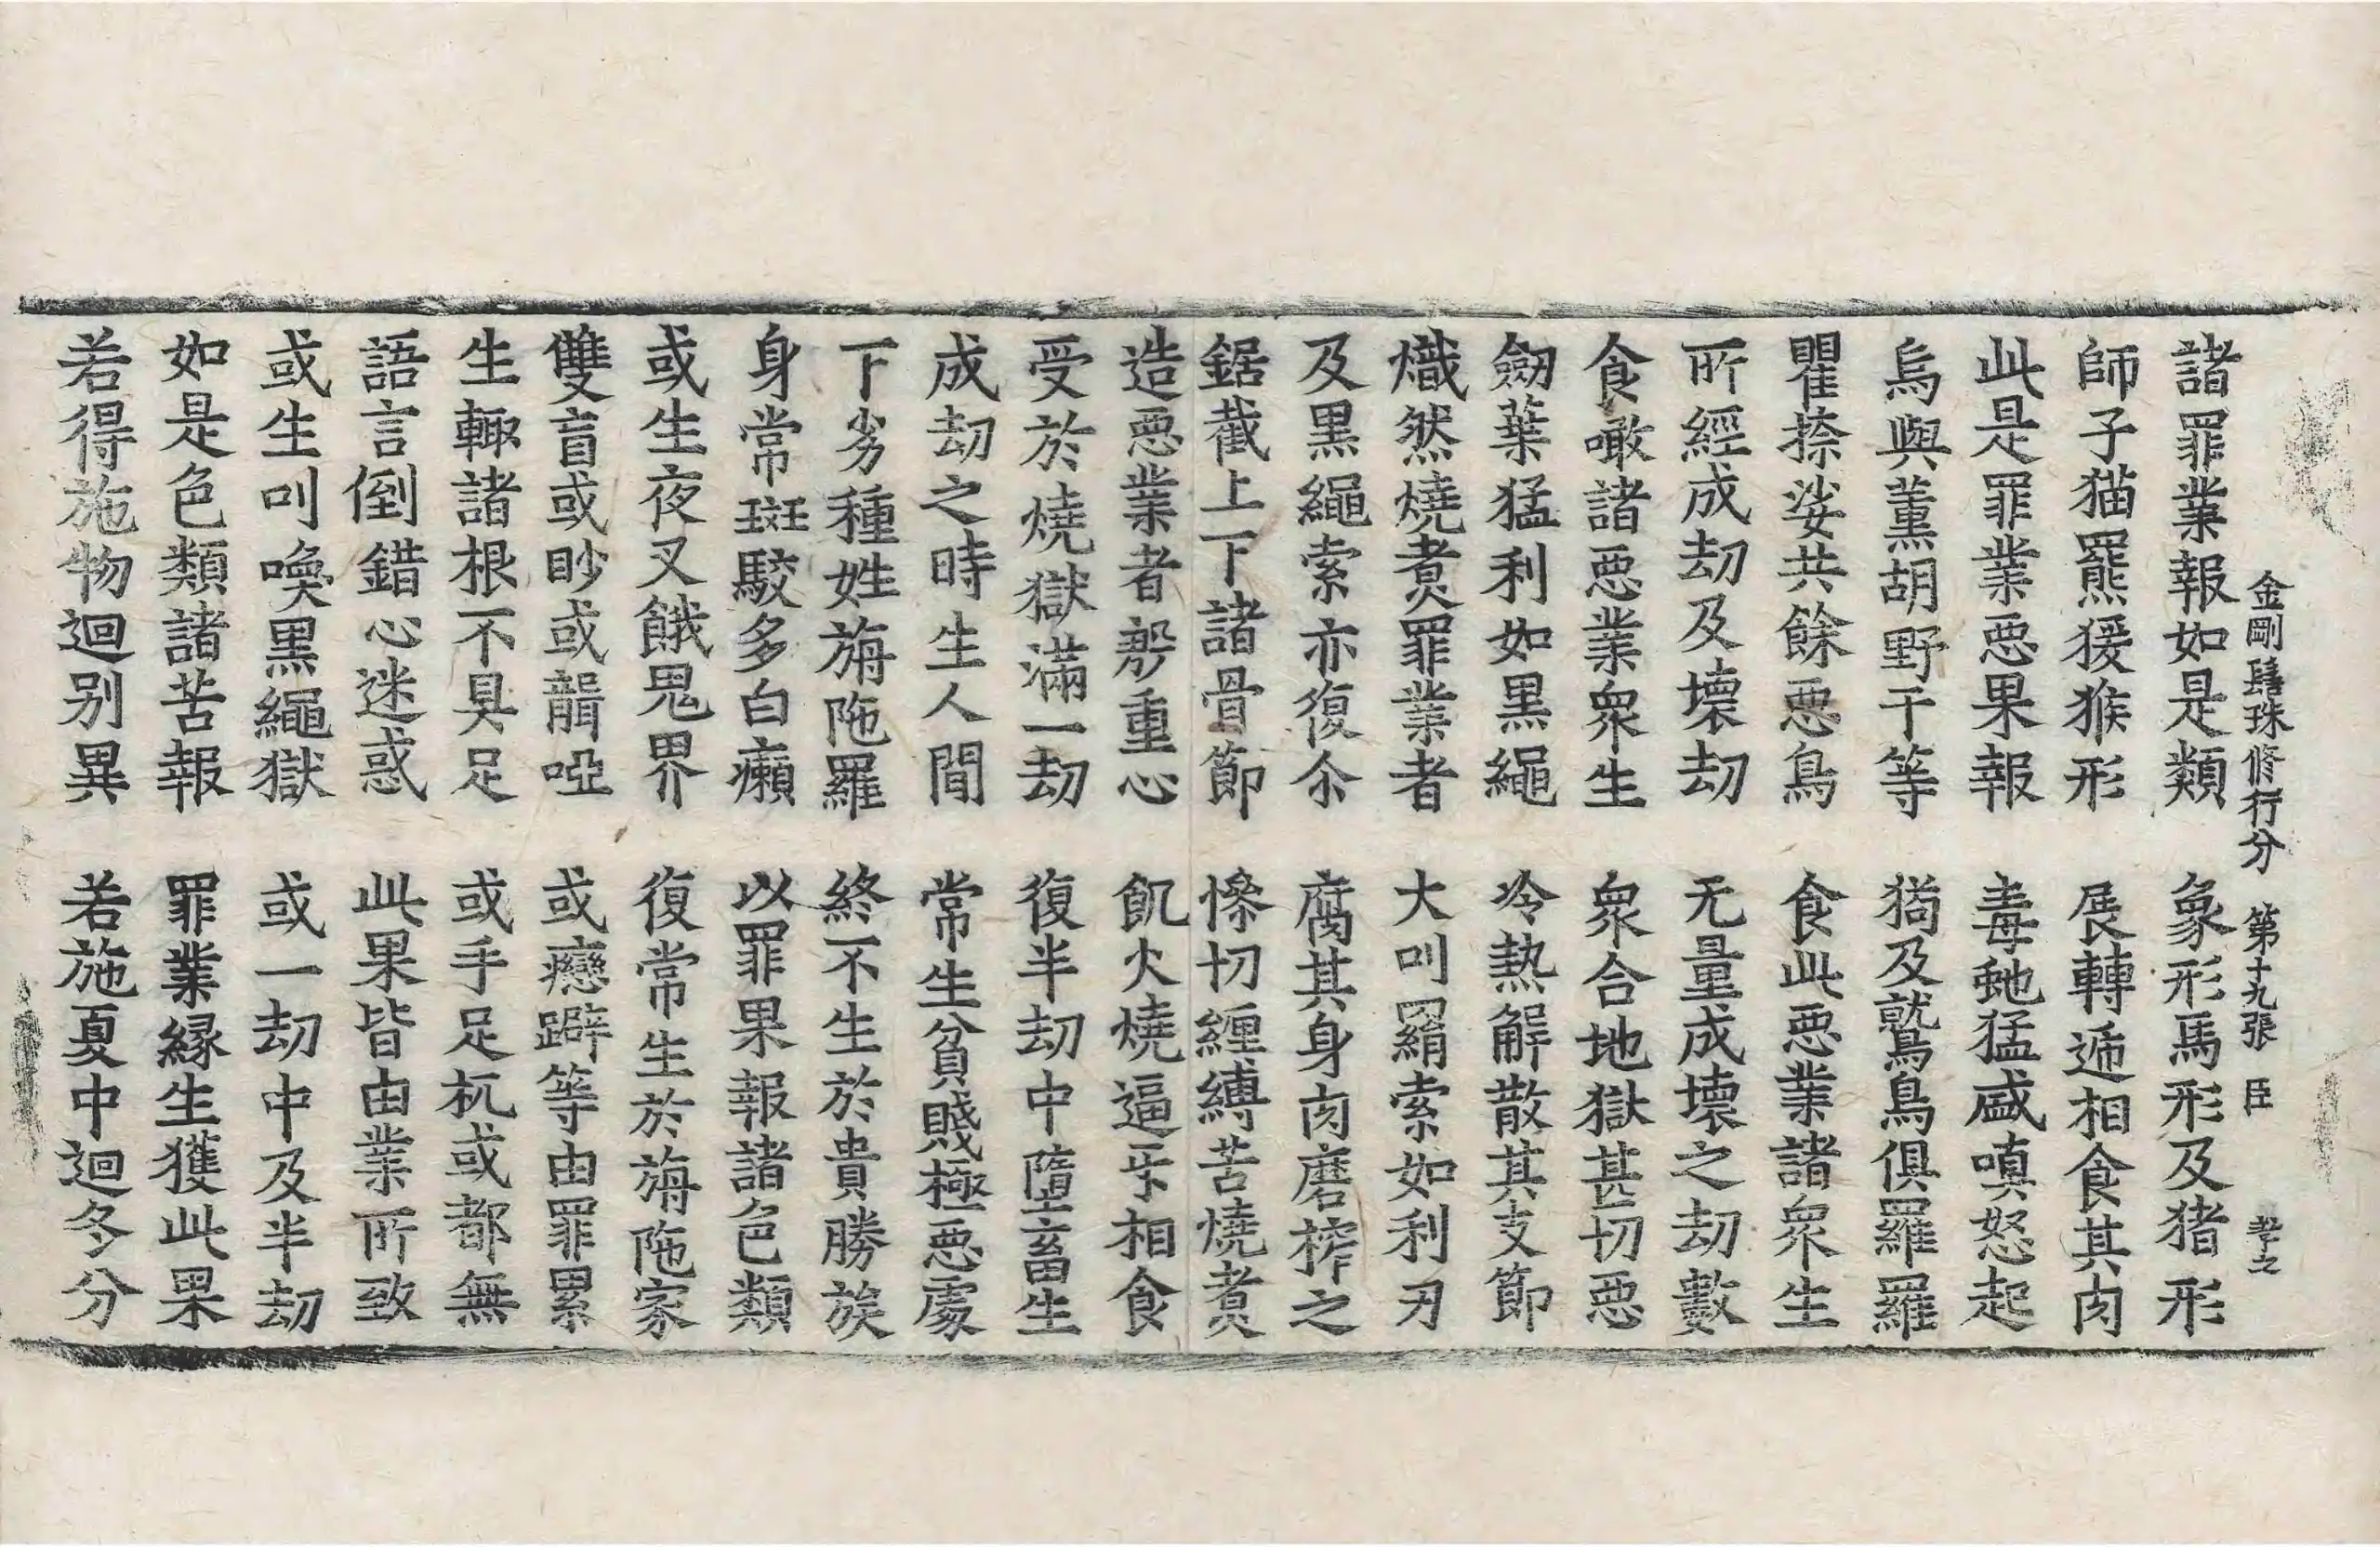 金剛髻珠修行分 第十九張 臣
諸罪業報如是類 象形馬形及猪形
師子猫羆猨猴形 展轉遞相食其肉
此是罪業惡果報 毒虵猛盛嗔怒起
烏與薰胡野干等 㺃及鷲鳥俱羅羅
瞿捺娑共餘惡鳥 食此惡業諸衆生
所經成劫及壞劫 无量成壞之劫數
食噉諸惡業衆生 衆合地獄甚切惡
劒葉猛利如黑繩 冷熱解散其支節
熾然燒煑罪業者 大叫羂索如利刃
及黑繩索亦復尒 腐其身肉磨搾之
鋸截上下諸骨節 慘切纏縛苦燒煑
造惡業者慇重心 飢火燒逼牙相食
受於燒獄滿一劫 復半劫中墮畜生
成劫之時生人間 常生貧賤極惡處
下劣種姓旃陁羅 終不生於貴勝族
身常斑駮多白癩 以罪果報諸色類
或生夜叉餓鬼界 復常生於旃陁家
雙盲或眇或聾啞 或癴躃等由罪累
生輙諸根不具足 或手足杌或都無
語言倒錯心迷惑 此果皆由業所致
或生叫喚黑繩獄 或一劫中及半劫
如是色類諸苦報 罪業緣生獲此果
若得施物迴别異 若施夏中迴冬分